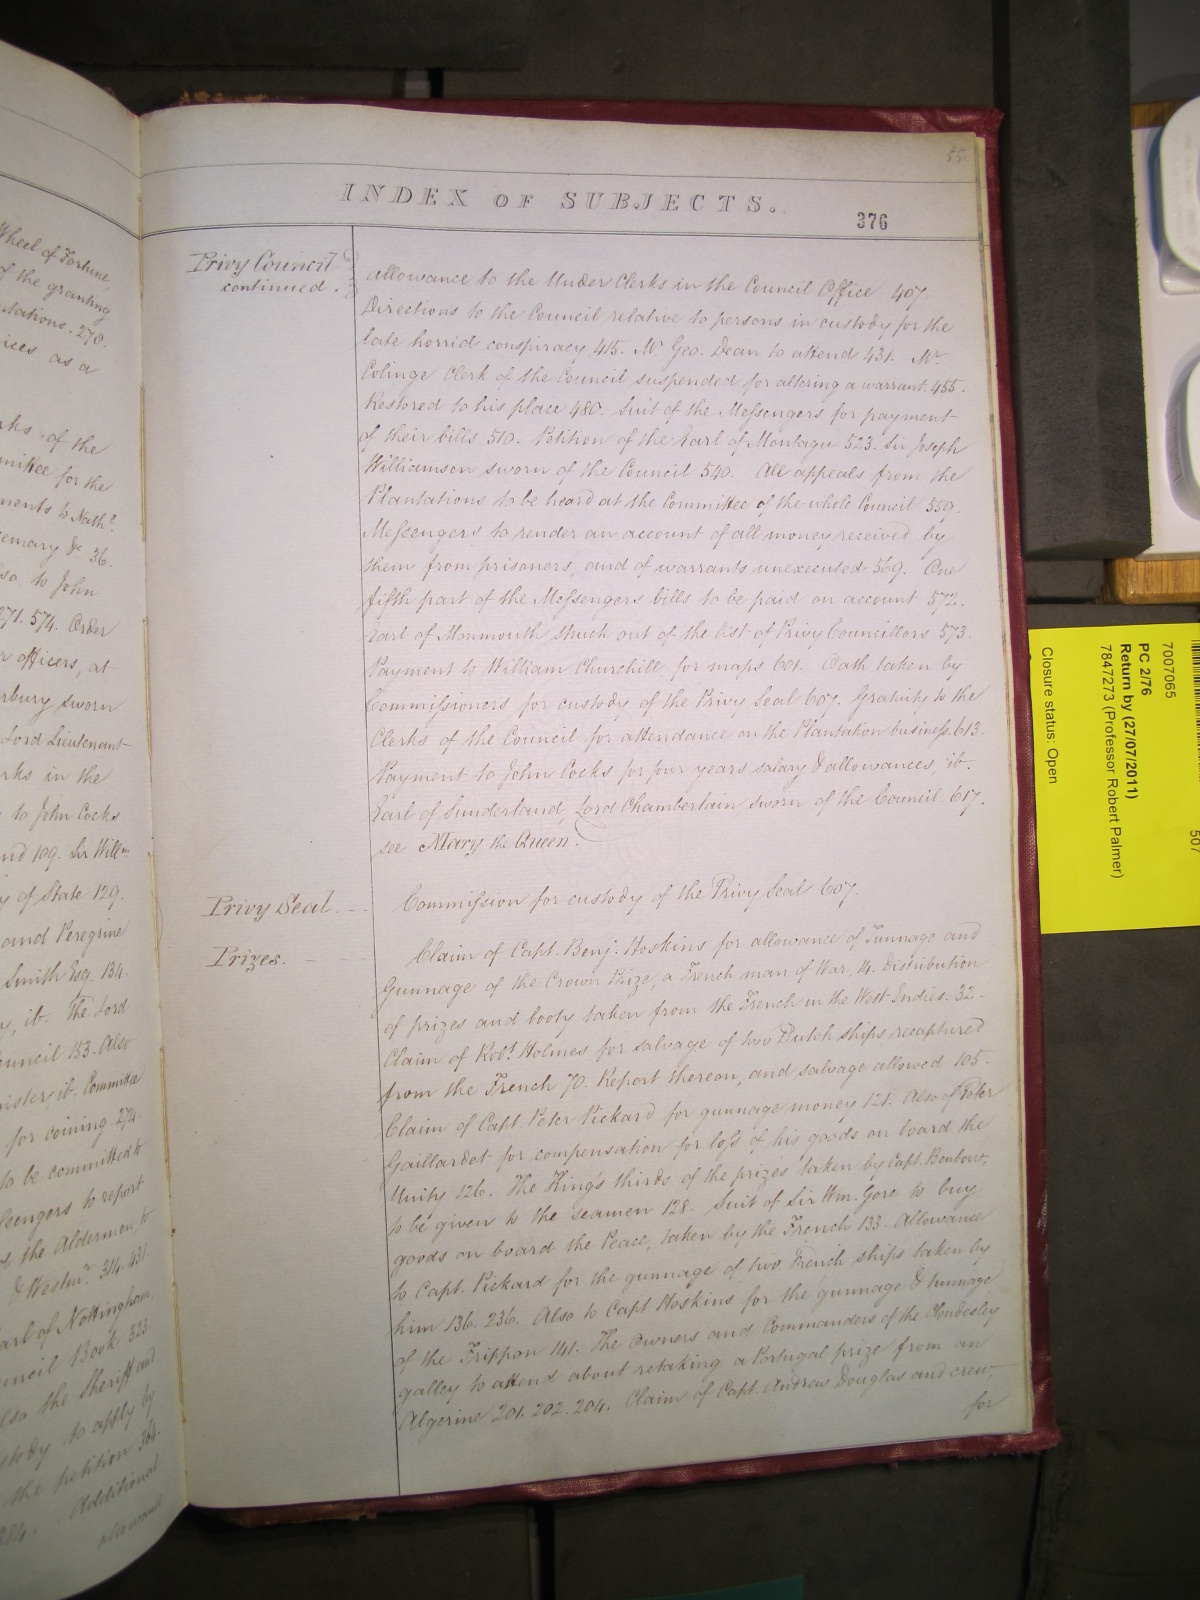 Wheel of Fortune,
of the granting
ntations. 278.
ices as a
rks of the
mittee for the
ments to Nathl.
emary &c 36.
lso to John
271. 574. Order
r officers, at
rbury sworn
Lord Lieutenant
rks in the
to John Cocks
nd 109. Sir Willm
y of State 129.
and Peregrine
Smith Esq. 134.
y, ib. The Lord
ouncil 153. Also
nister, ib. Committee
for coining 274.
to be committed to
ssengers to report
d the Aldermen, to
& Westmr. 314. 431.
arl of Nottingham
uncil Book 323.
lso the Sheriff and
stody to apply by
the petition 364.
Additional
allowance
55
INDEX OF SUBJECTS.
376
Privy Council
continued.
allowance to the Under Clerks in the Council Office 407.
Directions to the Council relative to persons in custody for the
late horrid conspiracy 415. Mr. Geo. Dean to attend 431. Mr.
Colinge Clerk of the Council suspended for altering a warrant. 455.
Restored to his place 480. Suit of the Messengers for payment
of their bills 510. Petition of the Earl of Montagu 523. Sir Joseph
Williamson sworn of the Council 540. All appeals from the
Plantations to be heard at the Committee of the whole Council 559.
Messengers to render an account of all money received by
them from prisoners, and of warrants unexecuted 569. One
fifth part of the Messengers bills to be paid on account 572.
Earl of Monmouth struck out of the list of Privy Councillors 573.
Payment to William Churchill, for maps 601. Oath taken by
Commissioners for custody of the Privy Seal 607. Gratuity to the
Clerks of the Council for attendance on the Plantation business. 613.
Payment to John Cocks for four years salary & allowances, ib.
Earl of Sunderland, Lord Chamberlain sworn of the Council. 617.
see Mary the Queen.
Privy Seal.
Commission for custody of the Privy Seal 607.
Prizes.
Claim of Capt. Benj. Hoskins for allowance of Tunnage and
Gunnage of the Crown Prize, a French man of War, 14. Distribution
of prizes and booty taken from the French in the West Indies. 32.
Claim of Robt. Holmes for salvage of two Dutch ships recaptured
from the French 70. Report thereon, and salvage allowed 105.
Claim of Capt. Peter Pickard for gunnage money 121. Also of Peter
Gaillardet for compensation for loss of his goods on board the
Unity 126. The King's thirds of the prizes taken by Capt. Benbow,
to be given to the seamen 128. Suit of Sir Wm. Gore to buy
goods on board the Peace, taken by the French 133. Allowance
to Capt. Pickard for the gunnage of two French ships taken by
him 136. 236. Also to Capt. Hoskins for the gunnage & tunnage
of the Frippon 141. The Owners and Commanders of the Cloudesley
galley to attend about retaking a Portugal prize from an
Algerine 201. 202. 204. Claim of Capt. Andrew Douglas and crew,
for
7007065
507
PC 2/76
Return by (27/07/2011)
7847273 (Professor Robert Palmer)
Closure status: Open